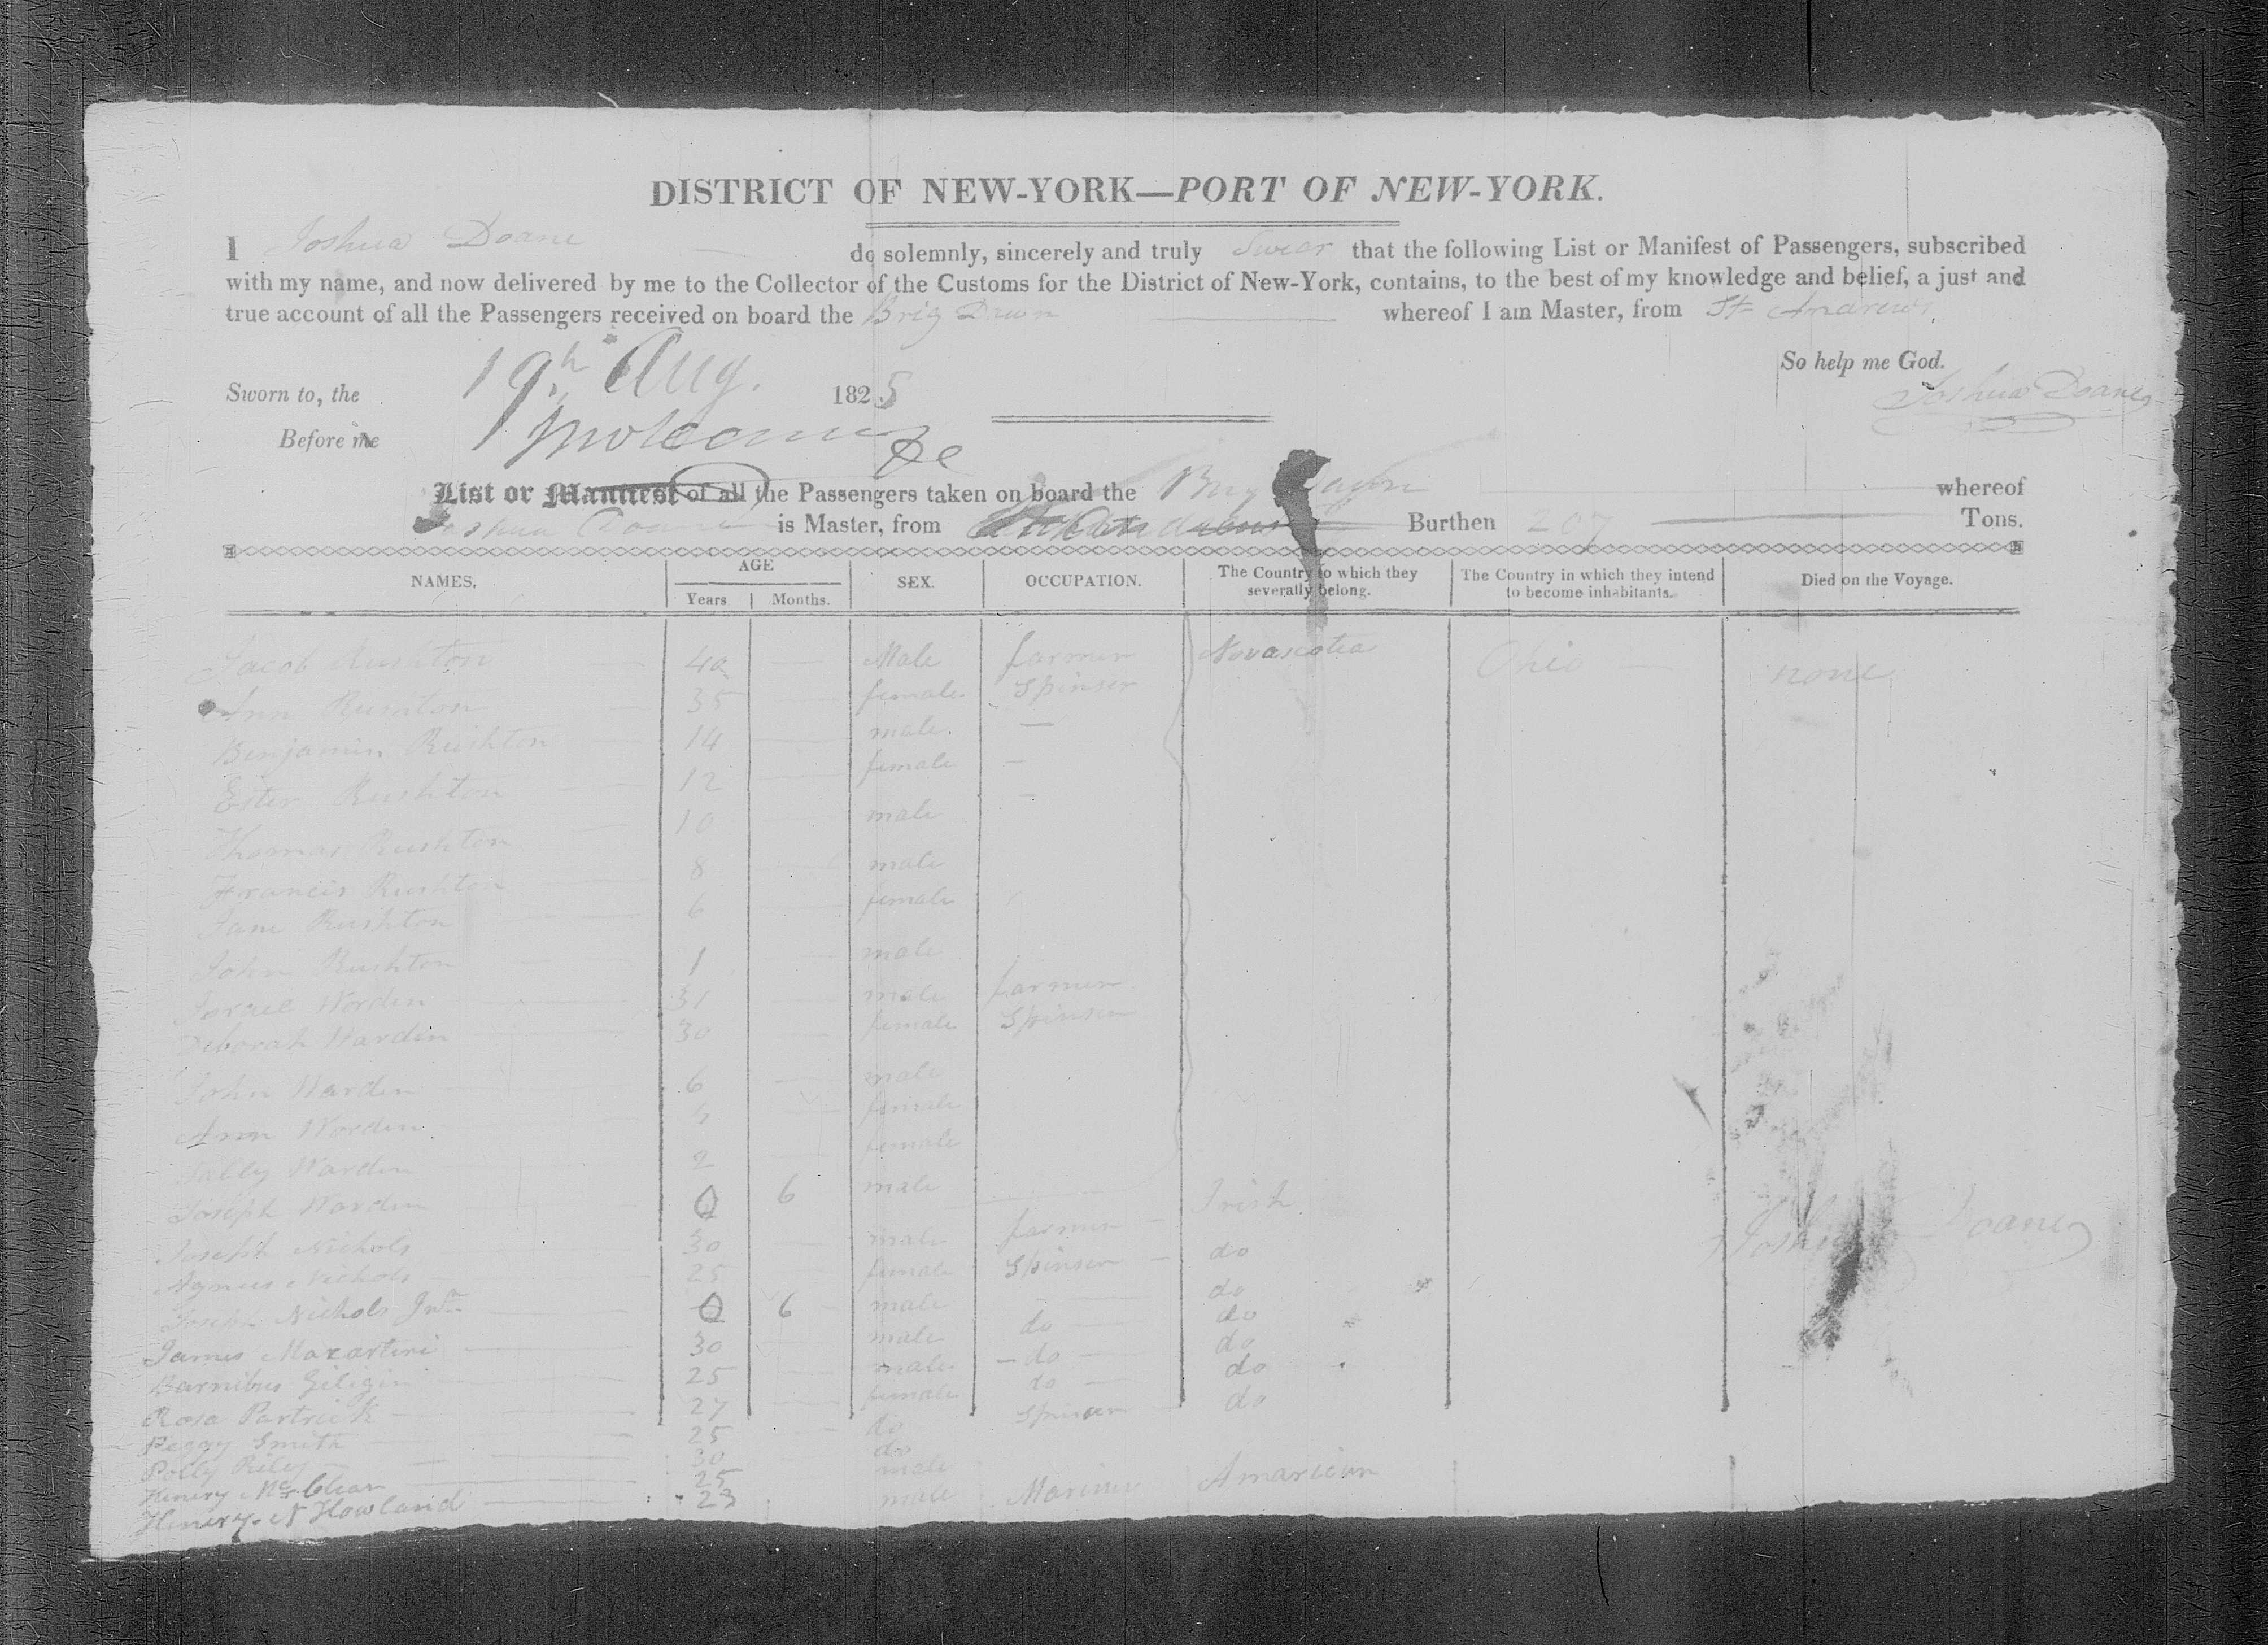 DISTRICT OF NEW-YORK—PORT OF NEW-YORK.
I Joshua Doane do solemnly, sincerely and truly Swear that the following List or Manifest of Passengers, subscribed
with my name, and now delivered by me to the Collector of the Customs for the District of New-York, contains, to the best of my knowledge and belief, a just and
true account of all the Passengers received on board the Brig Dawn whereof I am Master, from St Andrews
So help me God.
Sworn to, the 19th Aug. 1825
Joshua Doane
Before me
List or Manifest of all the Passengers taken on board the Brig Dawn whereof
Joshua Doane is Master, from Burthen 207 Tons.
NAMES. AGE SEX. OCCUPATION. The Country to which they severally belong. The Country in which they intend to become inhabitants. Died on the Voyage.
Years Months.
Jacob Rushton 40 — Male farmer Novascotia Ohio — none
Ann Rumton 35 — female Spinser
Benjamin Rushton 14 — male. —
Ester Rushton 12 — female —
Thomas Rushton 10 — male —
Francis Rushton 8 — male
Jane Rushton 6 — female
John Rushton 1 — male
Israel Worden 31 — male farmer
Deborah Warden 30 — female Spinser
John Warden 6 — male
Ann Worden 4 — female
Sally Warden 2 — female
Joseph Warden 0 6 male
Joseph Nichols 30 — male farmer — Irish
Agnus Nichols 25 — female Spinser — do
Joseph Nichols Jnr 0 6 male — do
James Macartini 30 — male do — do
Barnibus Giligin 25 — male — do — do
Rosa Partrick 27 — female do — do
Peggy Smith 25 — do Spinser — do
Polly Riley 30 do
Henery McClear 25 male
Henery N Howland 23 male Mariner Amarican
Joshua Doane